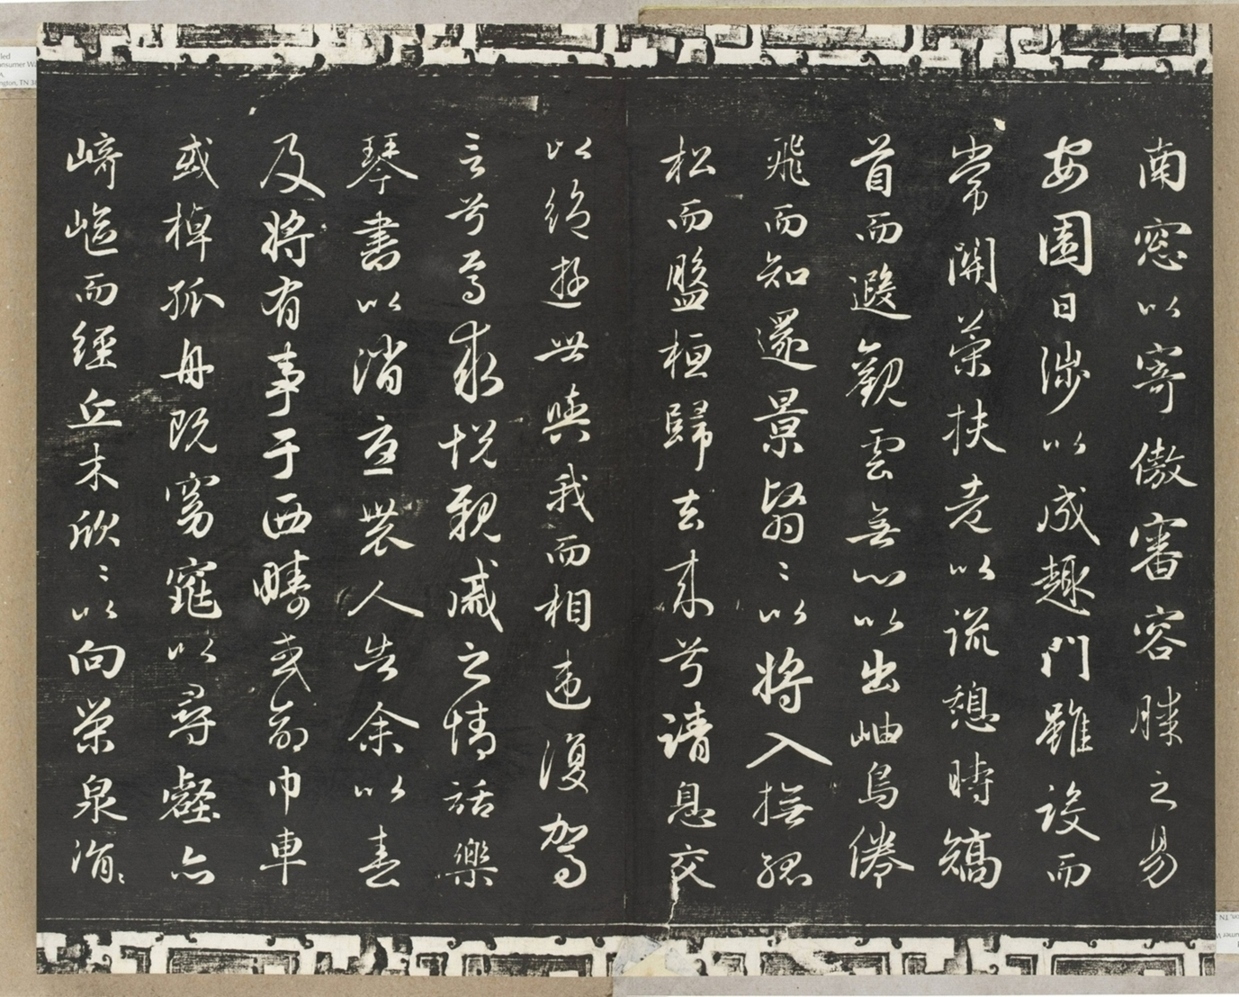 南窓以寄傲審容膝之易
安園日涉以成趣門雖設而
常關策扶老以流憩時矯
首而遐觀雲無心以出岫鳥倦
飛而知還景翳〻以將入撫孤
松而盤桓歸去來兮請息交
以絕遊世與我而相違復駕
言兮焉求悅親戚之情話樂
琴書以消憂農人告余以春
及將有事于西疇或命巾車
或棹孤舟既窈窕以尋壑亦
崎嶇而經丘木欣〻以向榮泉涓〻